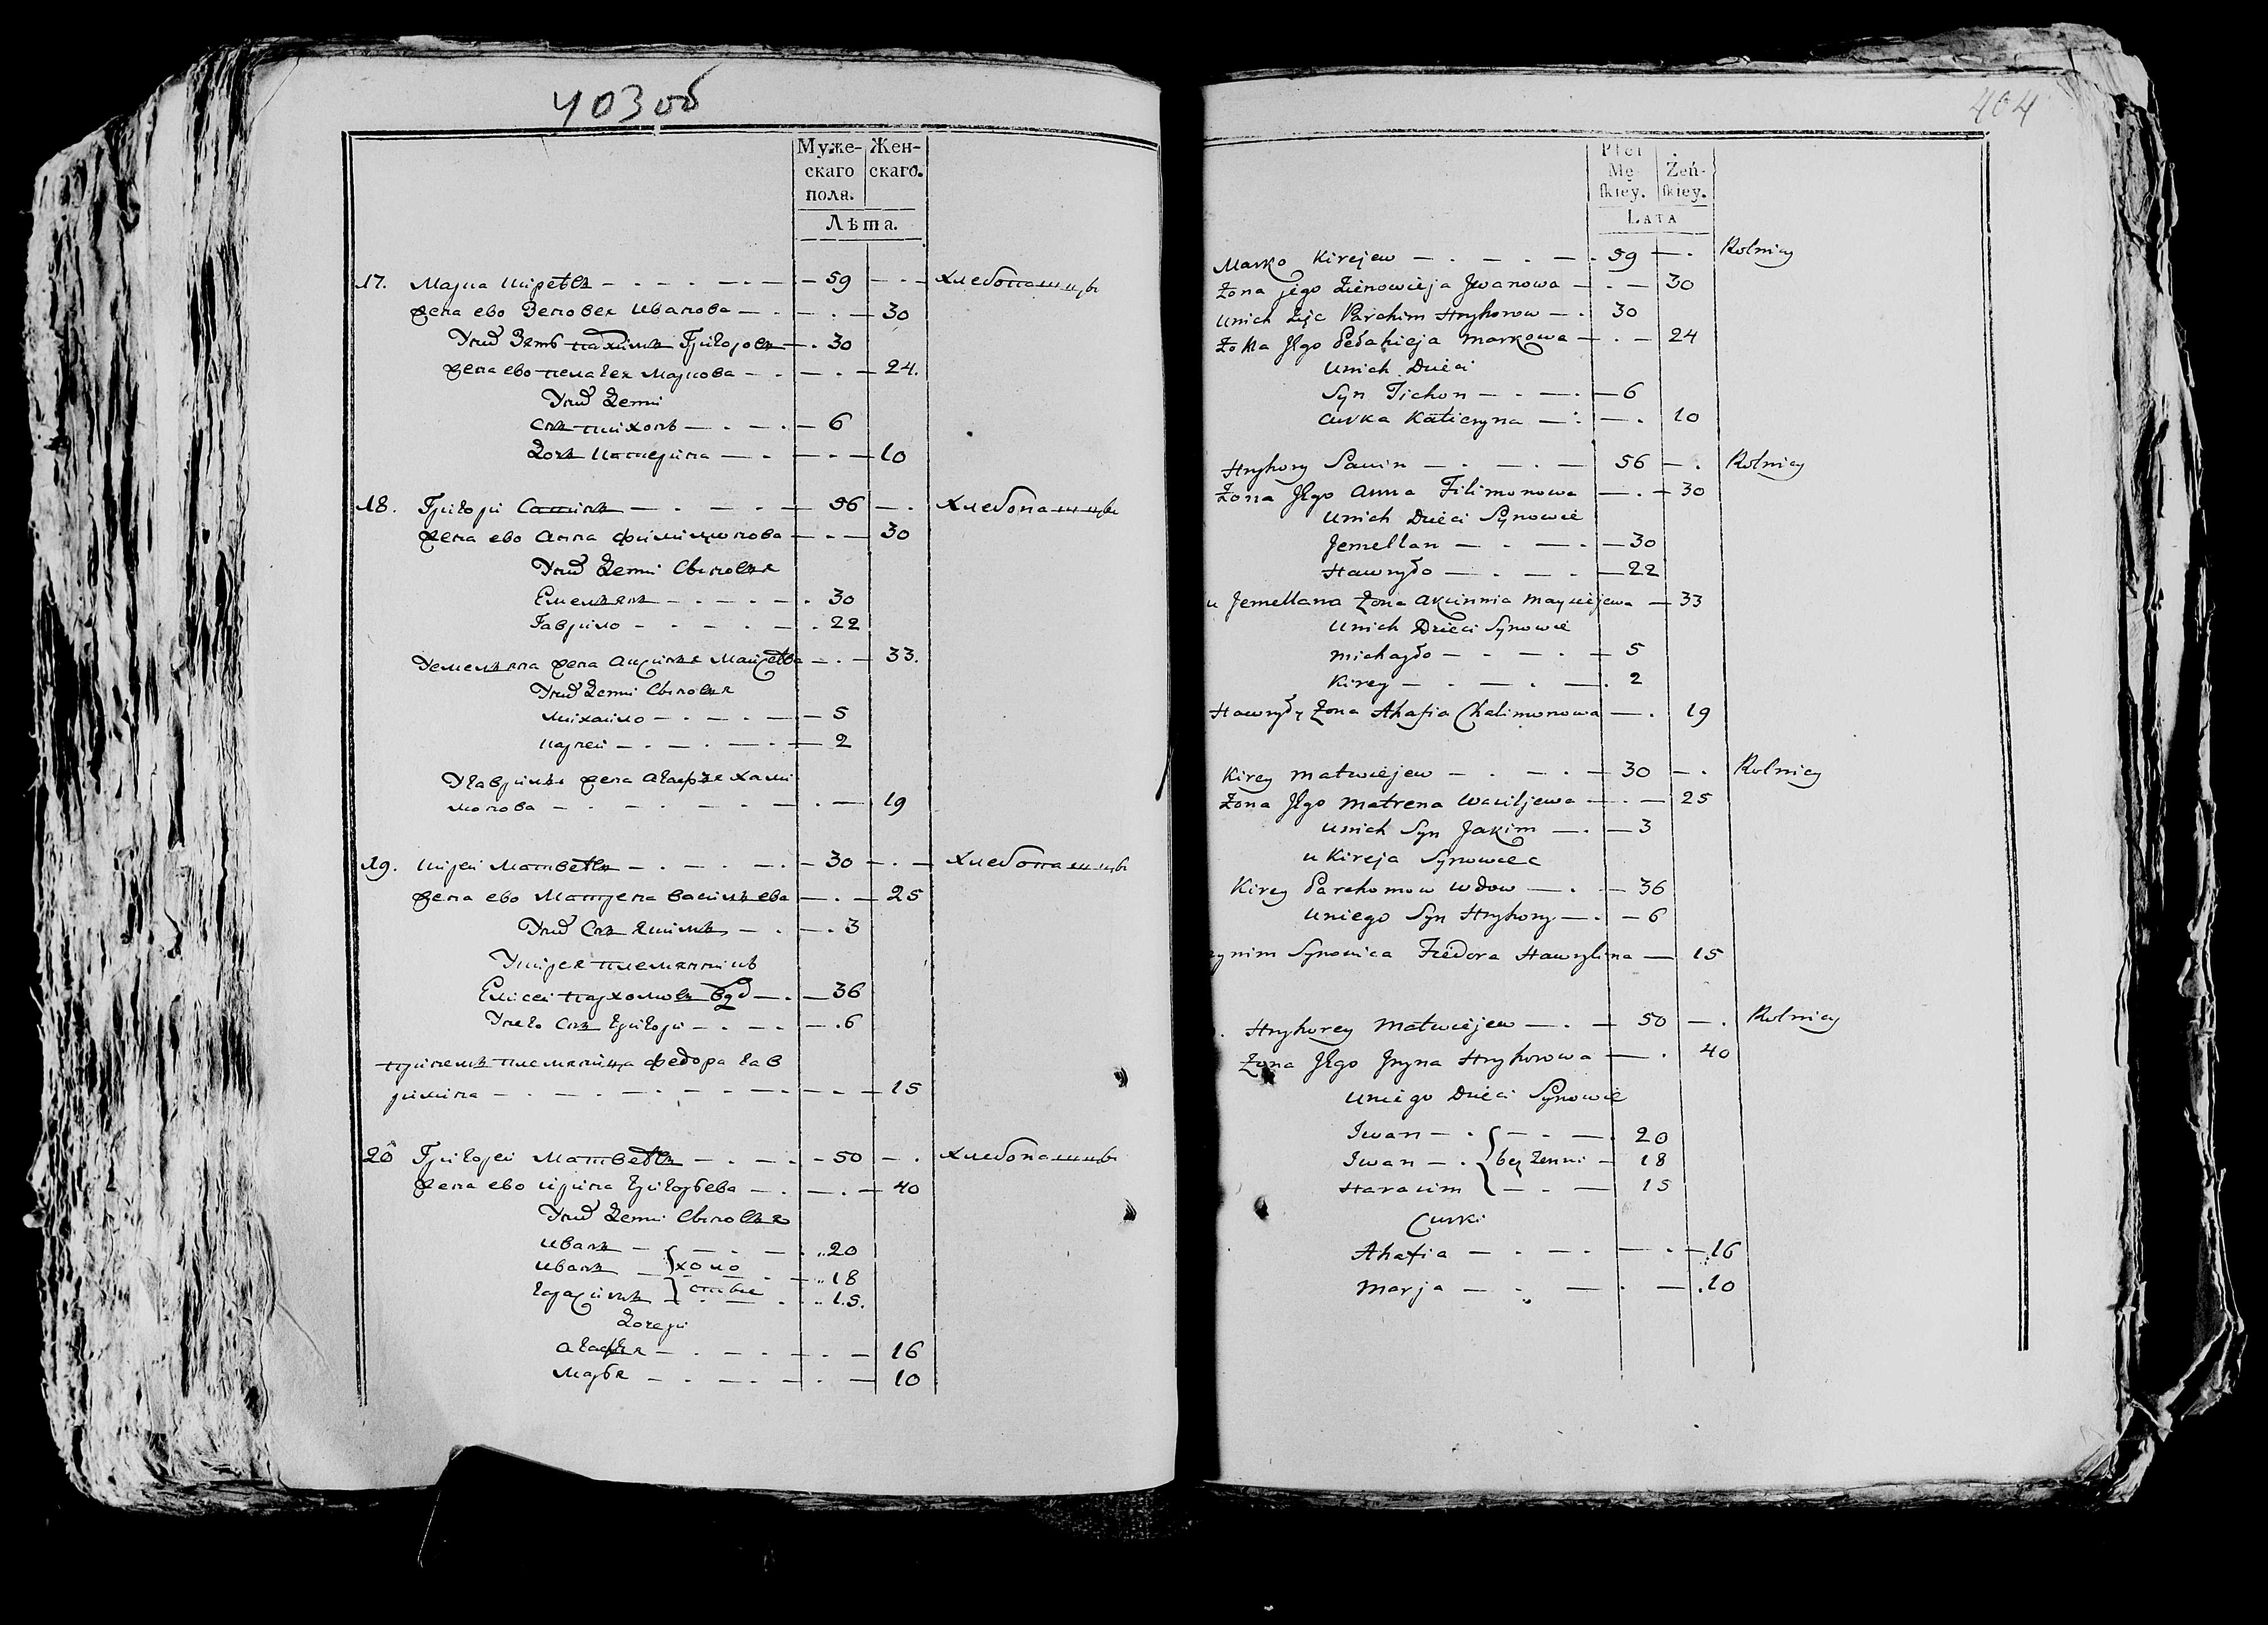 403 об
Муже-
скаго
пола.
Жен-
скаго.
Лѣта.
17. Марка Кирѣевъ 59 хлебопашцы
жена ево Зеновея Иванова 30
Уних Зять Пахимъ Григоровъ 30
жена ево пелагея Маркова 24.
Уних Дети
Снъ тихонъ 6
Дочь Катерина 10
18. Григори Савинъ 56 хлебопашцы
жена ево Анна филимонова 30
Уних Дети Сыновья
Емельянъ 30
Гаврило 22
Уемельяна жена Аксинья Матѣева 33.
Уних Дети Сыновья
михаило 5
2
Угаврилы жена агафья хали
монова 19
19. Кирей Матвѣевъ 30 хлебопашцы
жена ево Матрена васильева 25
Уних Снъ якимъ 3
Укирея племянникъ
Елисей пархомовъ вдо 36
Унего Снъ григори 6
принемъ племяница федора гав
рилина 15
20 Григорей Матвѣевъ 50 хлебопашцы
жена ево ирина григорьева 40
Уних Дети Сыновья
иванъ 20
иванъ холо 18
гарасимъ стые 15.
Дочери
агафья 16
марья 10
404
Płci
Mę-
ſkiey.
Żeń-
ſkiey.
Lata
Marko Kirejew 59 Rolnicy
Żona jego Zienowieja Jwanowa 30
unich Zięc Parchim Hryhorow 30
Żona Jego Pełahieja Markowa 24
unich Dzieci
Syn Tichon 6
Curka Katieryna 10
Hryhory Sawin 56 Rolnicy
Żona Jego Anna Filimonowa 30
unich Dzieci Synowie
Jemellan 30
Hawryło 22
u Jemellana Żona Akcinnia Maywiejewa 33
unich Dzieci Synowie
Michayło 5
Kirey 2
Hawryły Żona Ahafia Chalimonowa 19
Kirey Matwiejew 30 Rolnicy
Żona Jego Matrena Wasiljewa 25
unich Syn Jakim 3
u Kireja Synowiec
Kirey Parchomow wdow 36
uniego Syn Hryhory 6
rynim Synowica Fiedora Hawrylina 15
Hryhorey Matwiejew 50 Rolnicy
Żona Jego Jryna Hryhorowa 40
uniego Dzieci Synowie
Iwan 20
Iwan bez Żenni 18
Harasim 15
Curki
Ahafia 16
Marja 10